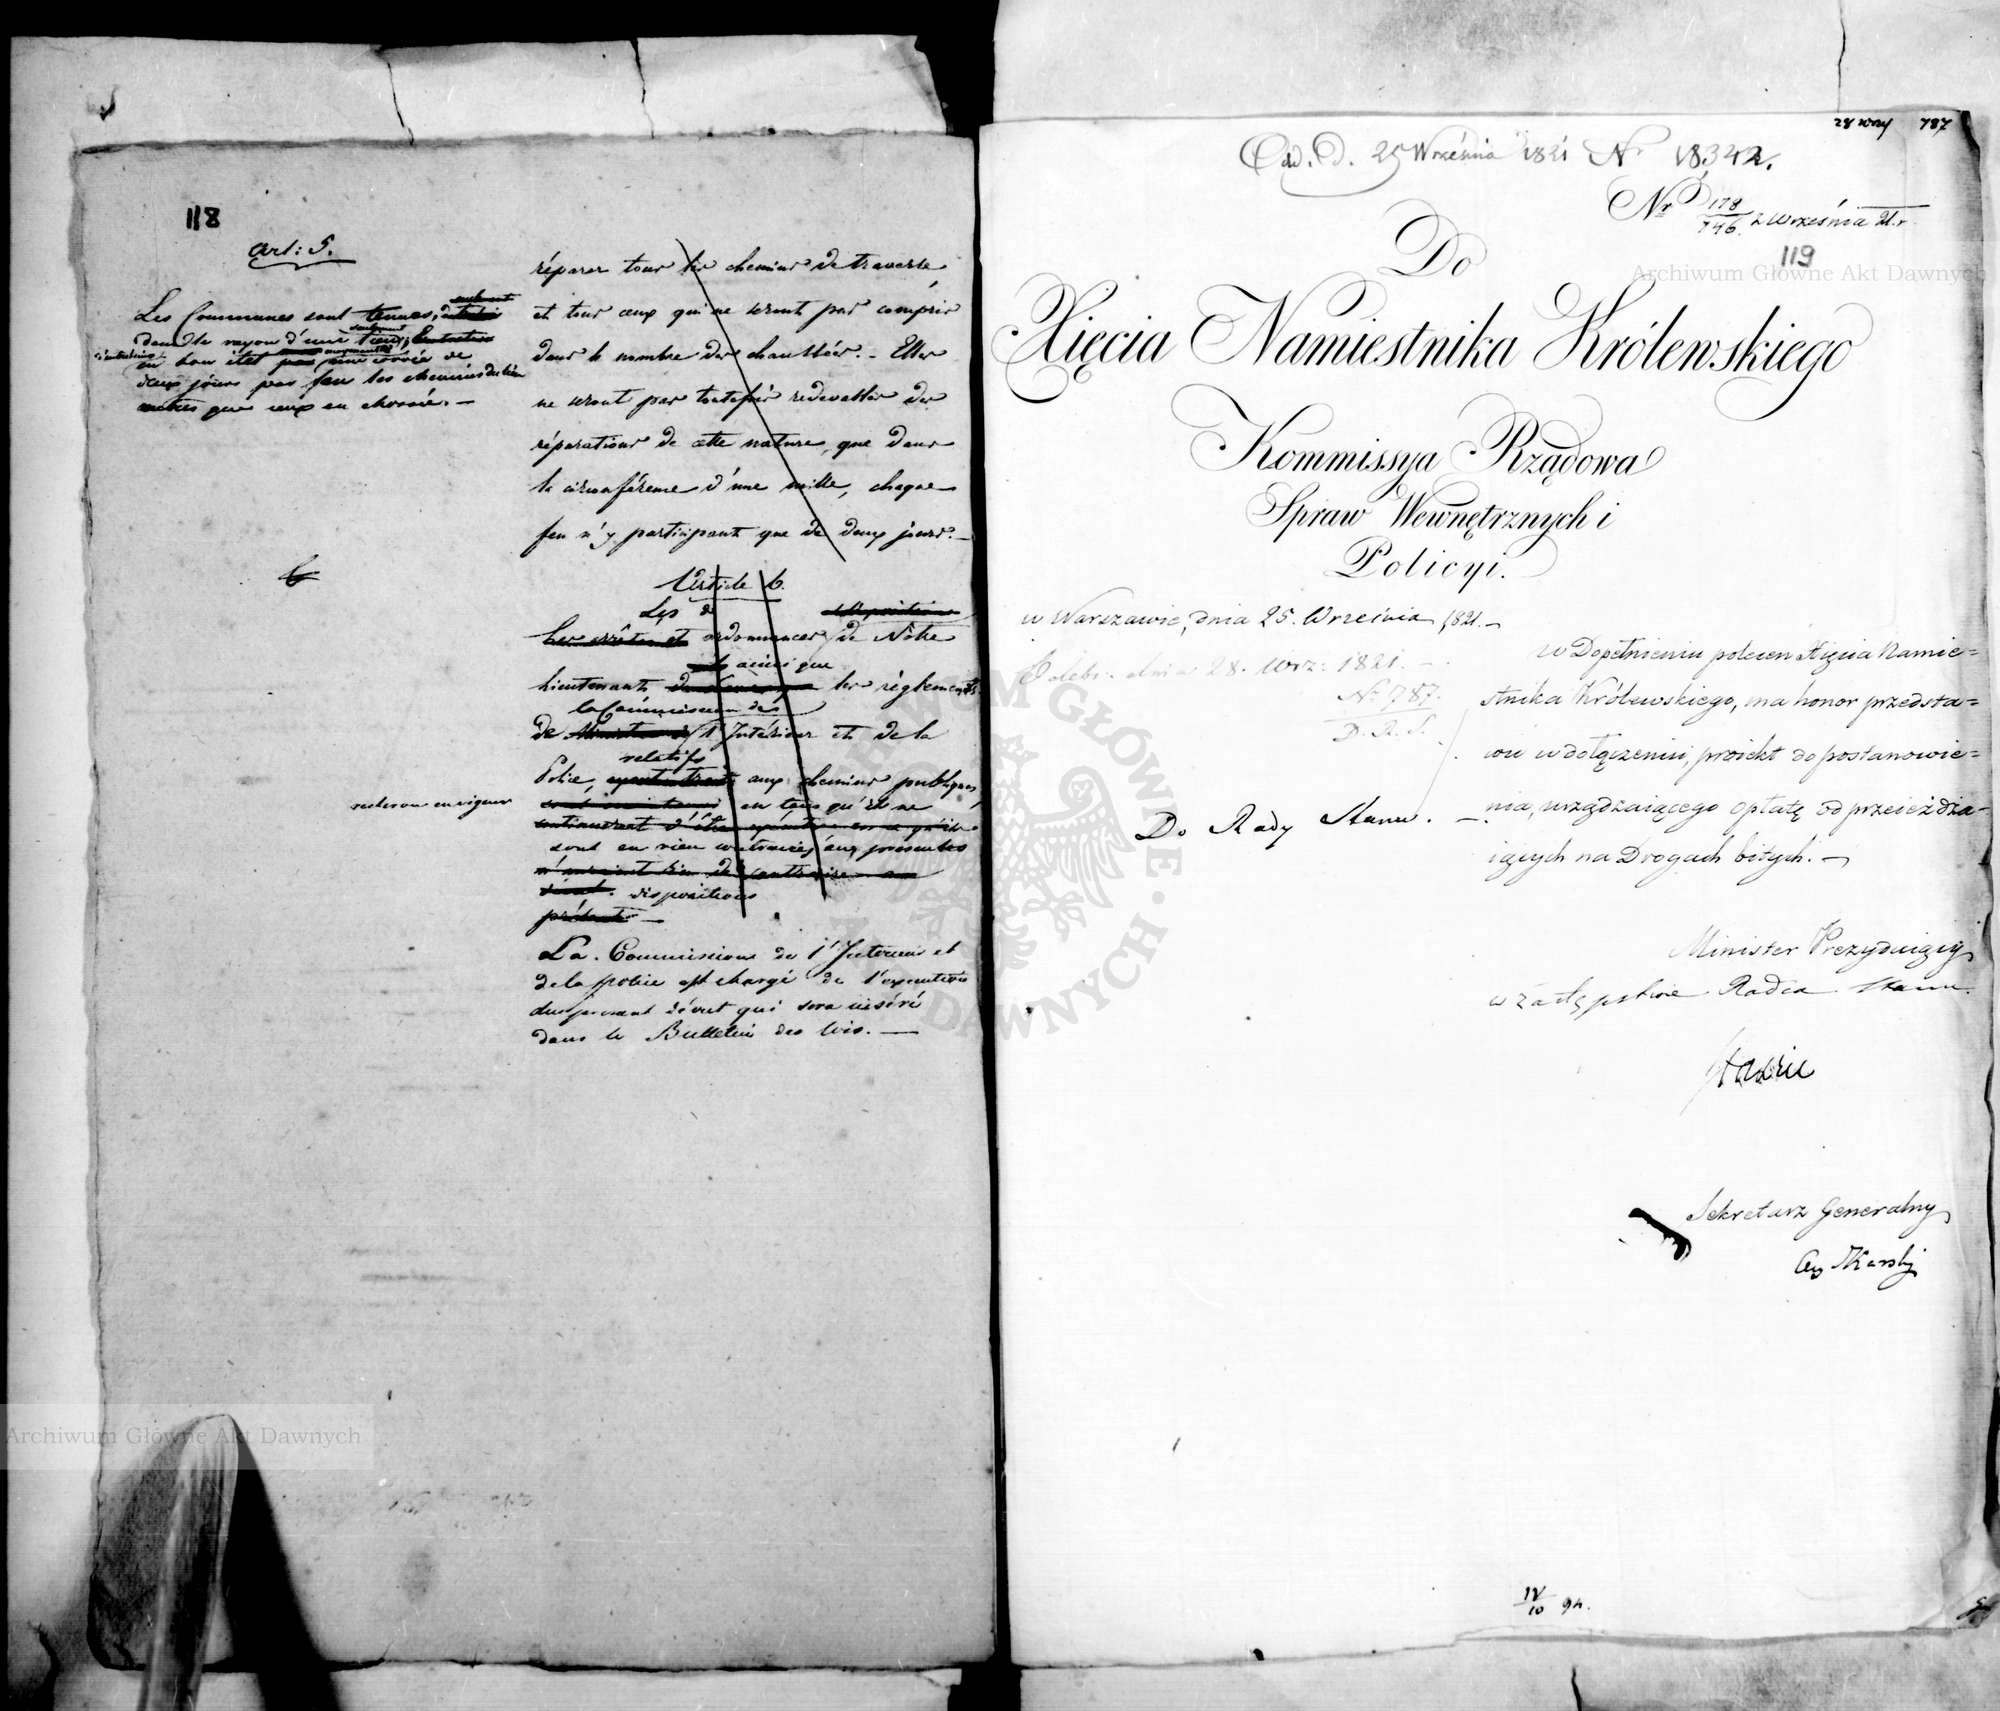 118
Art: 5.
Les Communes sont tenues,
dans le rayon d'une lieue, seulement
d'entretenir en bon état
deux jours par feu les chemins
autres que ceux en chaussée. —
réparer tous les chemins de traverse
et tous ceux qui ne seront pas compris
dans le nombre des chaussées. — Elles
ne seront pas toutefois redevables des
réparations de cette nature, que dans
la circonférence d'une mille, chaque
feu n'y participant que de deux jours. —
Article 6.
Les
Les arrêtés et ordonnances de Nôtre
ainsi que
Lieutenant les règlements
la Commission de
de l'Intérieur et de la
relatifs
Police, ayant trait aux chemins publiques,
en tant qu'ils ne
continueront d'être exécutés en ce qu'ils
sont en rien contraires aux présentes
n'auront rien de contraire au
dispositions
présent —
resteront en vigueur
La Commission de l'Interieur et
de la police est chargé de l'execution
du present décret qui sera inséré
dans le Bulletin des lois. —
28 wrz 787
Odd. d. 25 Września 1821 Nr 18,342.
Nr 178/746 z Września 21. r.
119
Do
Xięcia Namiestnika Królewskiego
Kommissya Rządowa
Spraw Wewnętrznych i
Policyi.
w Warszawie, dnia 25. Września 1821. —
Odebr. dnia 28. Wrz: 1821. —
No 787.
D. R. S.
Do Rady Stanu. —
w Dopełnieniu poleceń Xięcia Namie=
stnika Królewskiego, ma honor przedsta=
wić w dołączeniu, proiekt do postanowie=
nia, urządzaiącego opłatę od przeieżdża=
iących na Drogach bitych. —
Minister Prezyduiący
w zastępstwie Radca Stanu.
Staszic
Sekretarz Generalny
IV/10 94.
Archiwum Główne Akt Dawnych
Archiwum Główne Akt Dawnych
ARCHIWUM GŁÓWNE AKT DAWNYCH